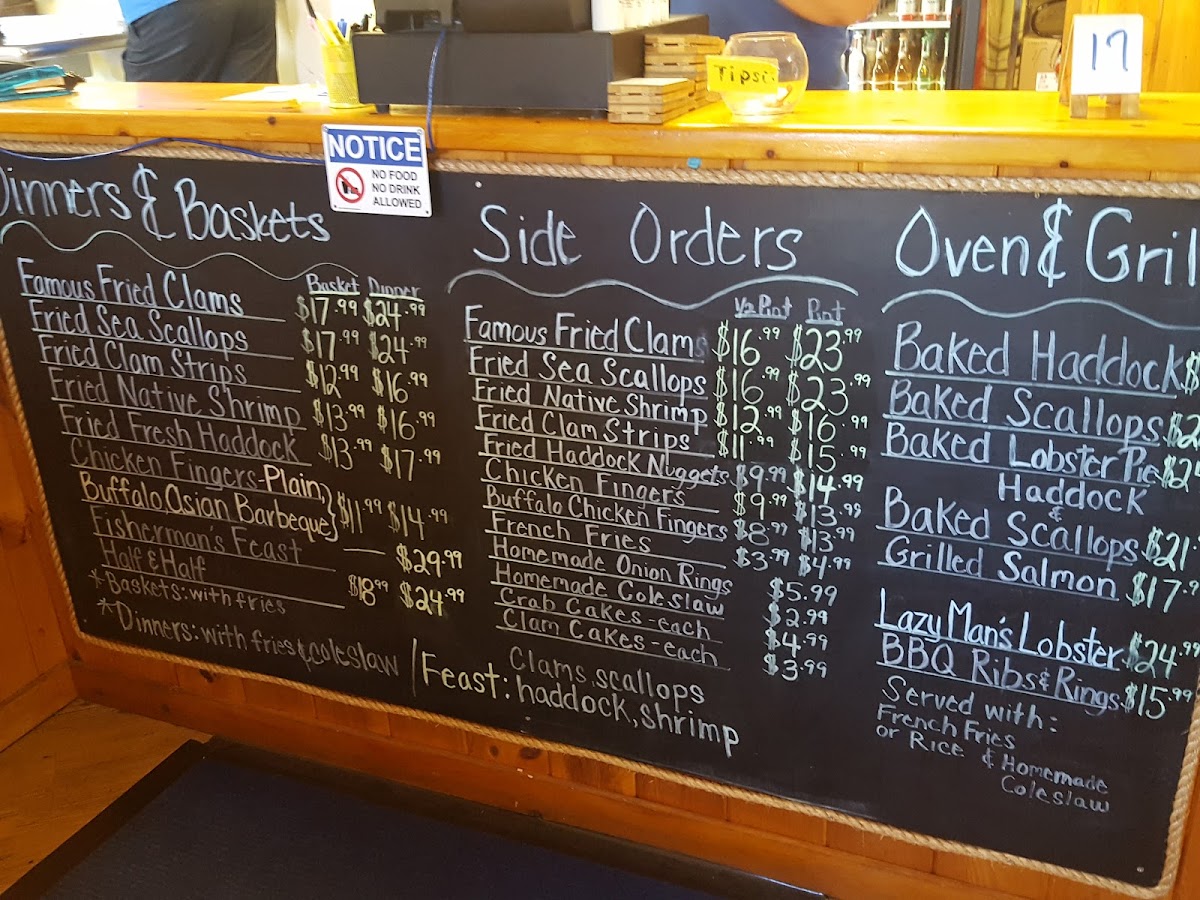 Tips:
17
NOTICE
NO FOOD
NO DRINK
ALLOWED
Dinners & Baskets
Basket Dinner
Famous Fried Clams $17.99 $24.99
Fried Sea Scallops $17.99 $24.99
Fried Clam Strips $12.99 $16.99
Fried Native Shrimp $13.99 $16.99
Fried Fresh Haddock $13.99 $17.99
Chicken Fingers-Plain,
Buffalo, Asian Barbeque} $11.99 $14.99
Fisherman's Feast — $29.99
Half & Half $18.99 $24.99
*Baskets: with fries
*Dinners: with fries & coleslaw
Feast: Clams, scallops
haddock, shrimp
Side Orders
1/2 Pint Pint
Famous Fried Clams $16.99 $23.99
Fried Sea Scallops $16.99 $23.99
Fried Native Shrimp $12.99 $16.99
Fried Clam Strips $11.99 $15.99
Fried Haddock Nuggets $9.99 $14.99
Chicken Fingers $9.99 $13.99
Buffalo Chicken Fingers $8.99 $13.99
French Fries $3.99 $4.99
Homemade Onion Rings $5.99
Homemade Coleslaw $2.99
Crab Cakes-each $4.99
Clam Cakes-each $3.99
Oven & Gril
Baked Haddock $
Baked Scallops $2
Baked Lobster Pie $2
Haddock
&
Baked Scallops $21.
Grilled Salmon $17.9
Lazy Man's Lobster $24.99
BBQ Ribs & Rings $15.99
Served with:
French Fries
or Rice & Homemade
Coleslaw